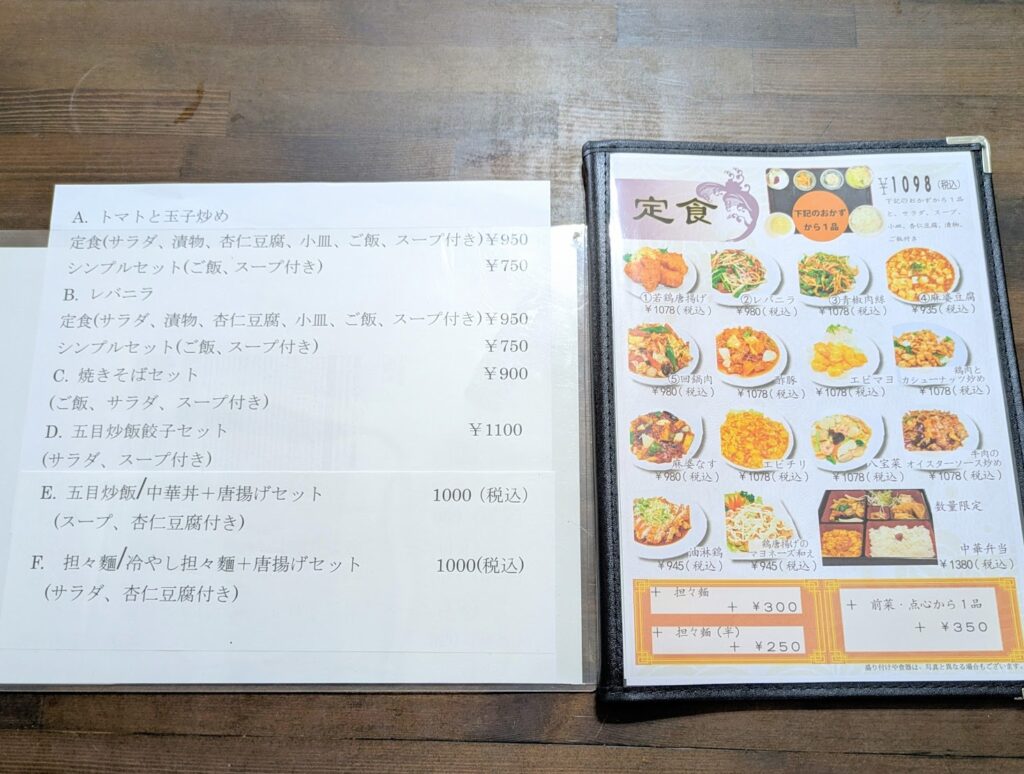 A. トマトと玉子炒め
定食(サラダ、漬物、杏仁豆腐、小皿、ご飯、スープ付き)￥950
シンプルセット(ご飯、スープ付き) ￥750
B. レバニラ
定食(サラダ、漬物、杏仁豆腐、小皿、ご飯、スープ付き)￥950
シンプルセット(ご飯、スープ付き) ￥750
C. 焼きそばセット ￥900
(ご飯、サラダ、スープ付き)
D. 五目炒飯餃子セット ￥1100
(サラダ、スープ付き)
E. 五目炒飯/中華丼＋唐揚げセット 1000 (税込)
(スープ、杏仁豆腐付き)
F. 担々麺/冷やし担々麺＋唐揚げセット 1000(税込)
(サラダ、杏仁豆腐付き)
定食
下記のおかず
から1品
￥1098 (税込)
下記のおかずから1品
と、サラダ、スープ、
小皿、杏仁豆腐、漬物、
ご飯付き
①若鶏唐揚げ
￥1078(税込)
②レバニラ
￥980(税込)
③青椒肉絲
￥1078(税込)
④麻婆豆腐
￥935(税込)
⑤回鍋肉
￥980(税込)
酢豚
￥1078(税込)
エビマヨ
￥1078(税込)
鶏肉と
カシューナッツ炒め
￥1078(税込)
麻婆なす
￥980(税込)
エビチリ
￥1078(税込)
八宝菜
￥1078(税込)
牛肉の
オイスターソース炒め
￥1078(税込)
油淋鶏
￥945(税込)
鶏唐揚げの
マヨネーズ和え
￥945(税込)
数量限定
中華弁当
￥1380(税込)
＋ 担々麺
＋ ￥300
＋ 担々麺(半)
＋ ￥250
＋ 前菜・点心から1品
＋ ￥350
盛り付けや食器は、写真と異なる場合もございます。